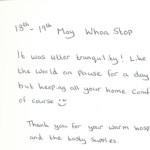 18th - 19th May Whoa Stop
It was utter tranquility! Like
the world on pause for a day
but keeping all your home comf
of course
Thank you for your warm hosp
and the tasty supplies.